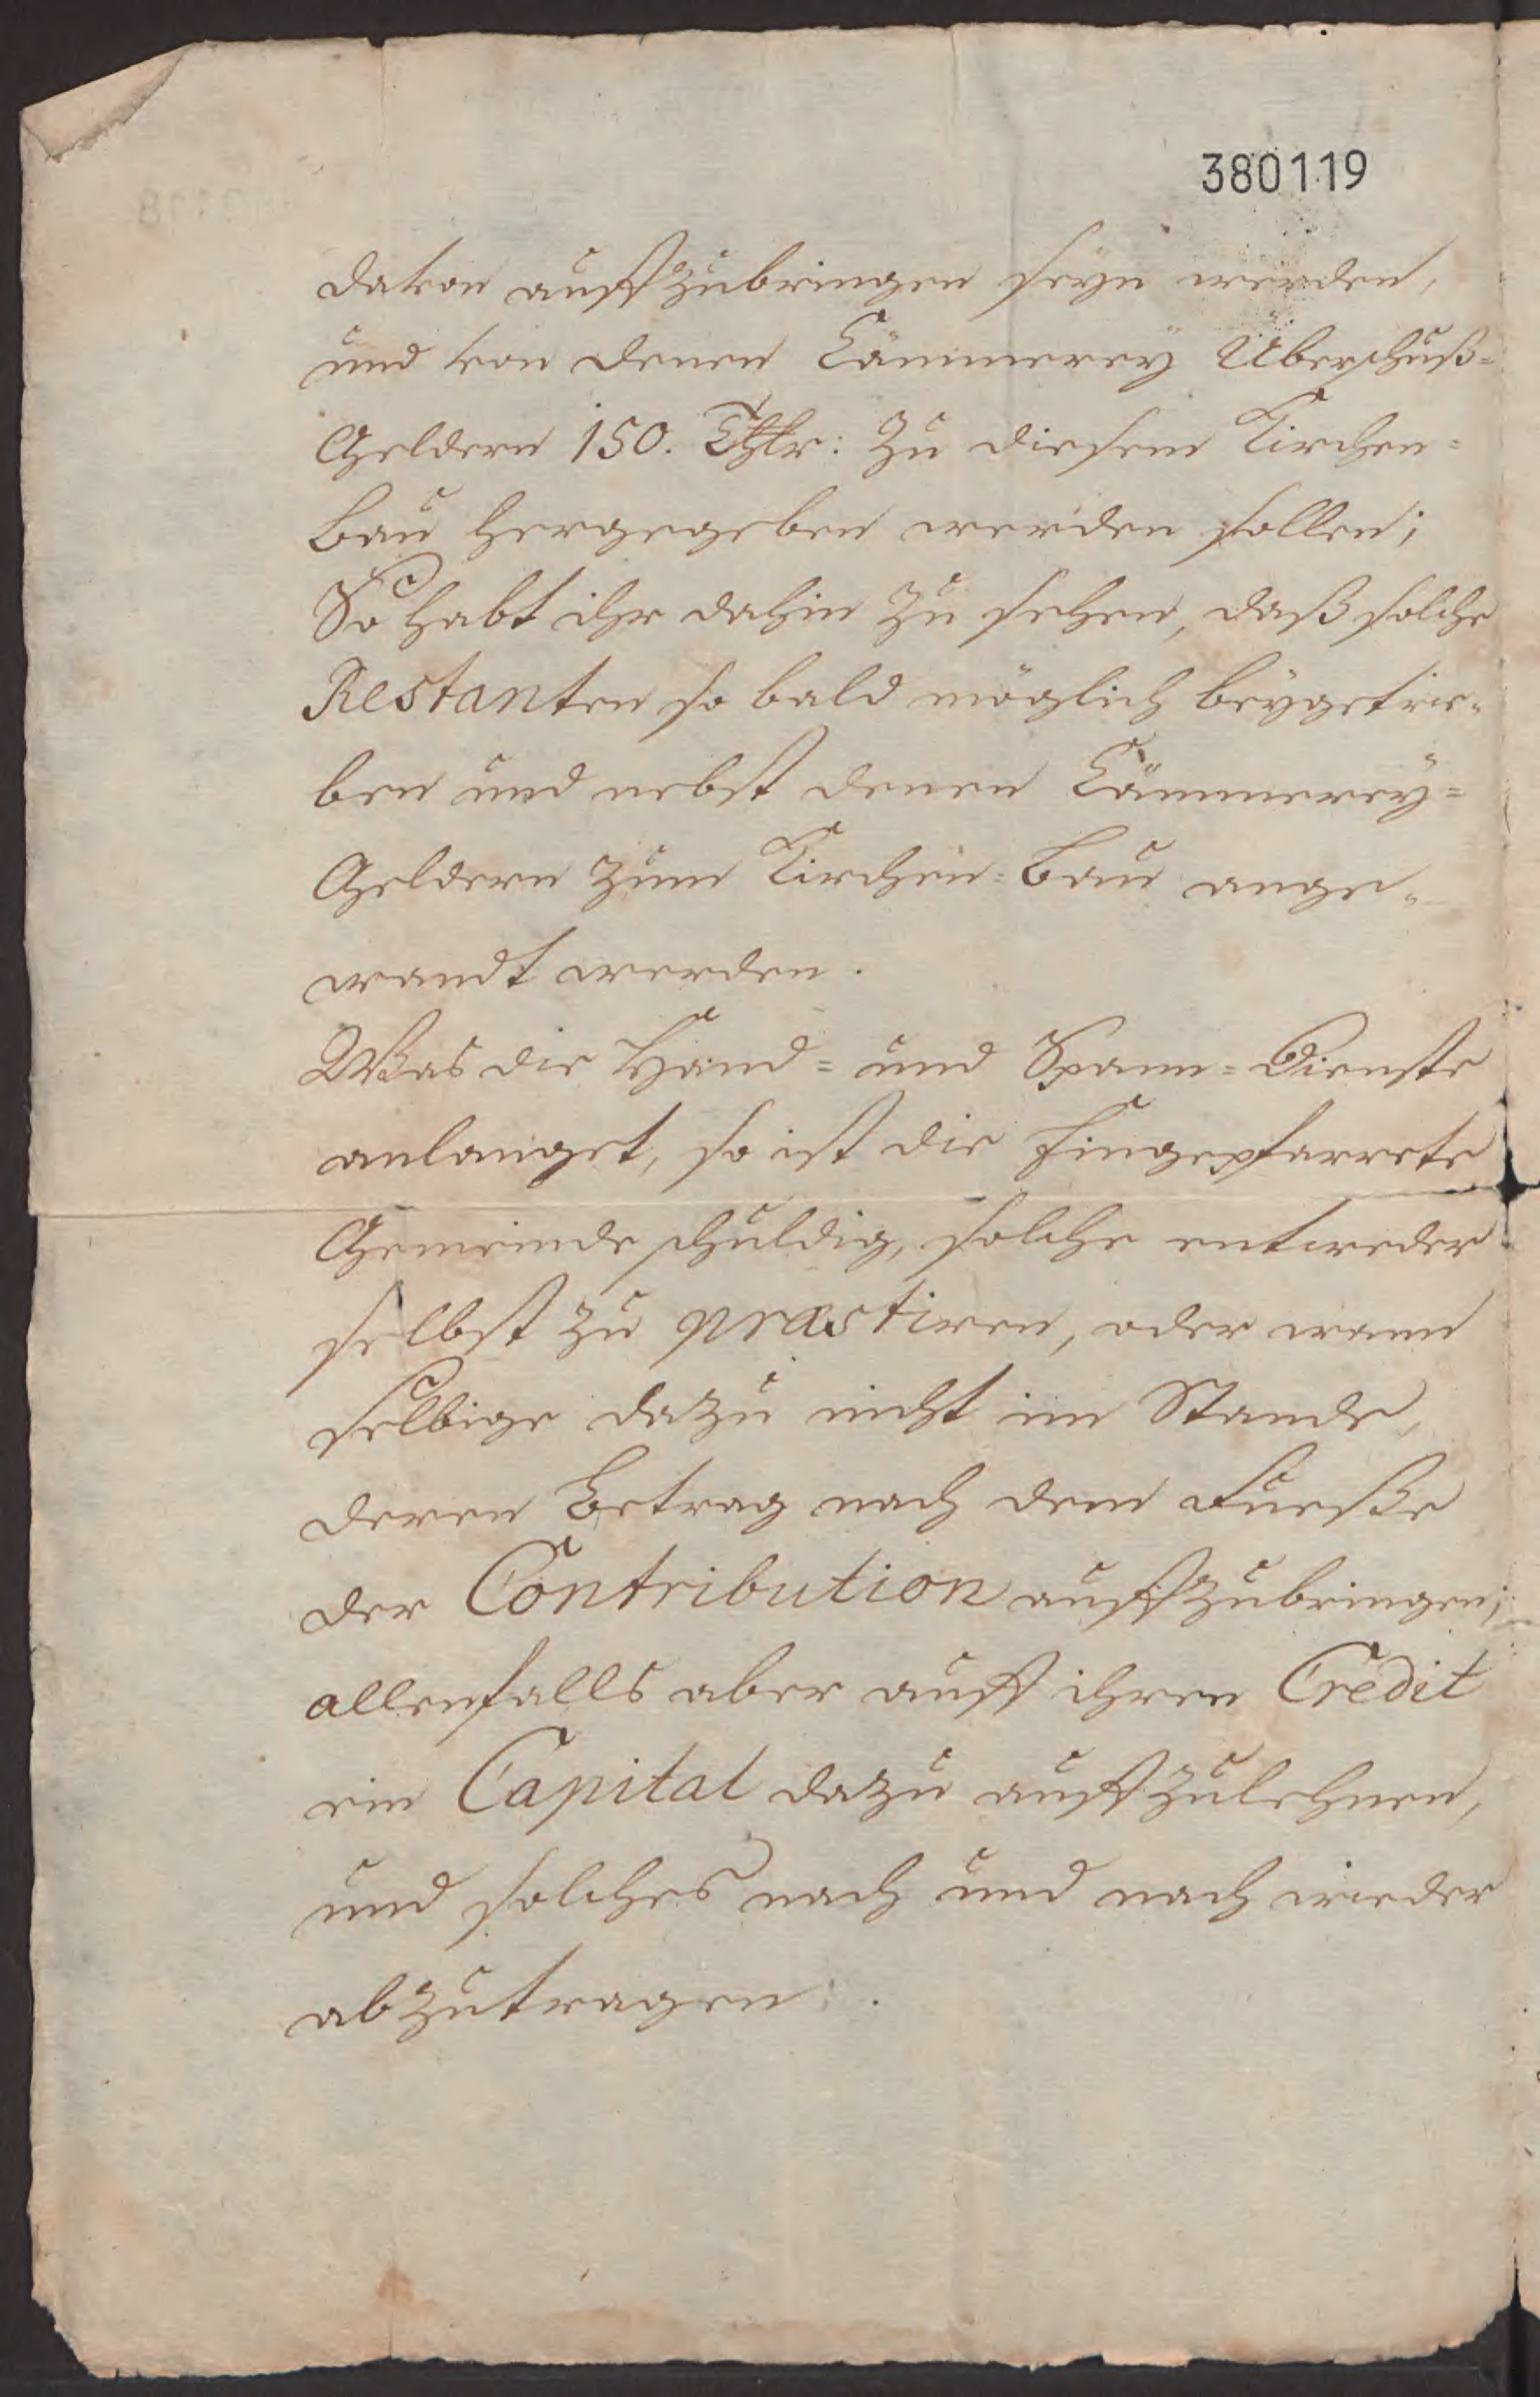 380119
davon auffzubringen seyn werden,
und von denen Cämmerey Überschuß-
Geldern 150. Thlr: zu diesem Kirchen-
Bau hergegeben werden sollen;
So habt ihr dahin zu sehen, daß solche
Restanten so bald möglich beygetrie-
ben und nebst denen Cämmerey-
Geldern zum Kirchen-Bau ange-
wandt werden.
Was die Hand- und Spann-Dienste
anlanget, so ist die Eingepfarrete
Gemeinde schuldig, solche entweder
selbst zu præstiren, oder wann
selbige dazu nicht im Stande,
deren Betrag nach dem Fueße
der Contribution auffzubringen;
allenfalls aber auff ihren Credit
ein Capital dazu auffzulehnen,
und solches nach und nach wieder
abzutragen.